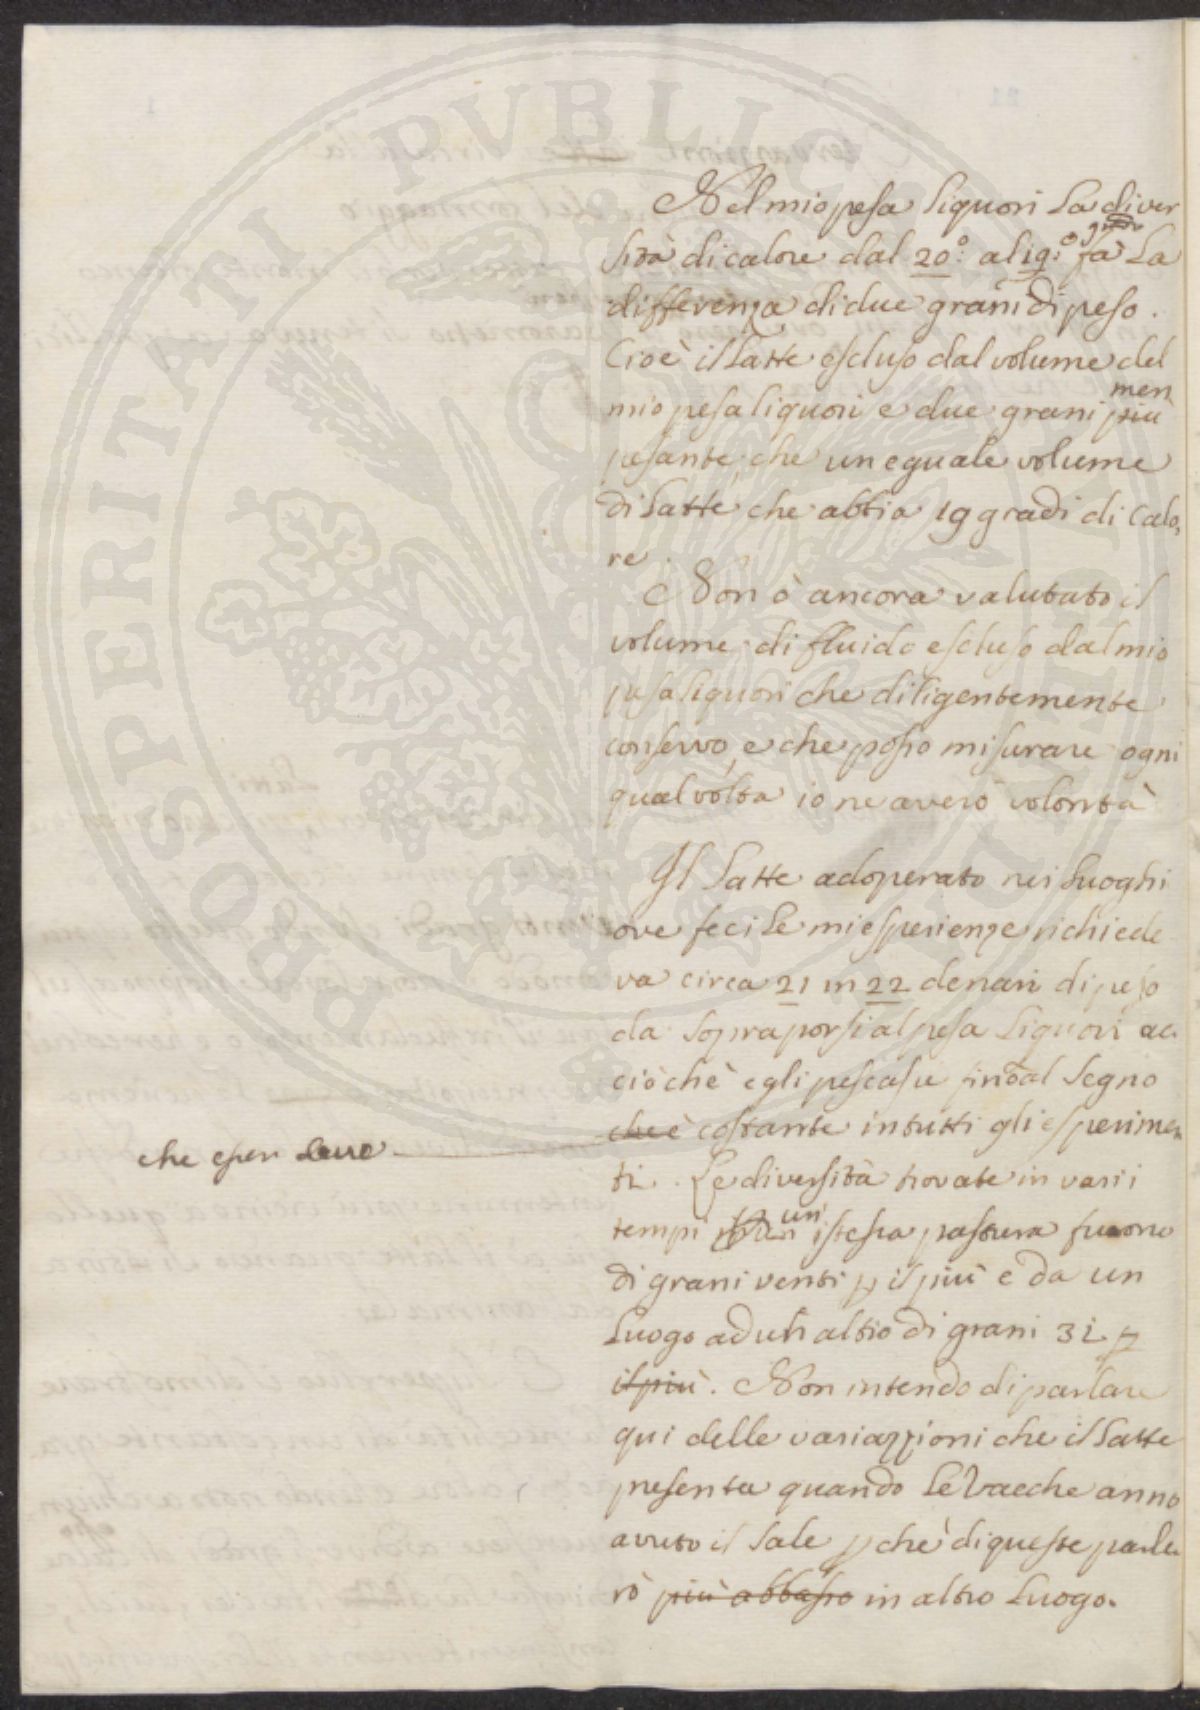 Nel mio pesa liquori la diver
sità di calore dal 20°: al 19:° grado fà la
differenza di due grani di peso.
Cioè il latte escluso dal volume del
mio pesaliquori e due grani più men
pesante, che un eguale volume
di latte che abbia 19 gradi di calo,
re.
Non ò ancora valutato il
volume di fluido escluso dal mio
pesaliquori che diligentemente
conservo, e che posso misurare ogni
qual volta io ne averò volontà
Il latte adoperato nei luoghi
ove feci le mie sperienze richiede
va circa 21 in 22 denari di peso
da sopraporsi al pesa liquori ac
ciòchè egli pescasse fino al segno
che è costante in tutti gli esperimen
che esser deve
ti. Le diversità trovate in varii
tempi un' istessa pastura furono
di grani venti p il più e da un
luogo ad un altro di grani 31. p
il più. Non intendo di parlare
qui delle variazzioni che il latte
presenta quando le Vacche anno
avuto il sale p chè di queste parle
rò più abbasso in altro luogo.
PROSPERITATI PVBLICAE AVGENDAE